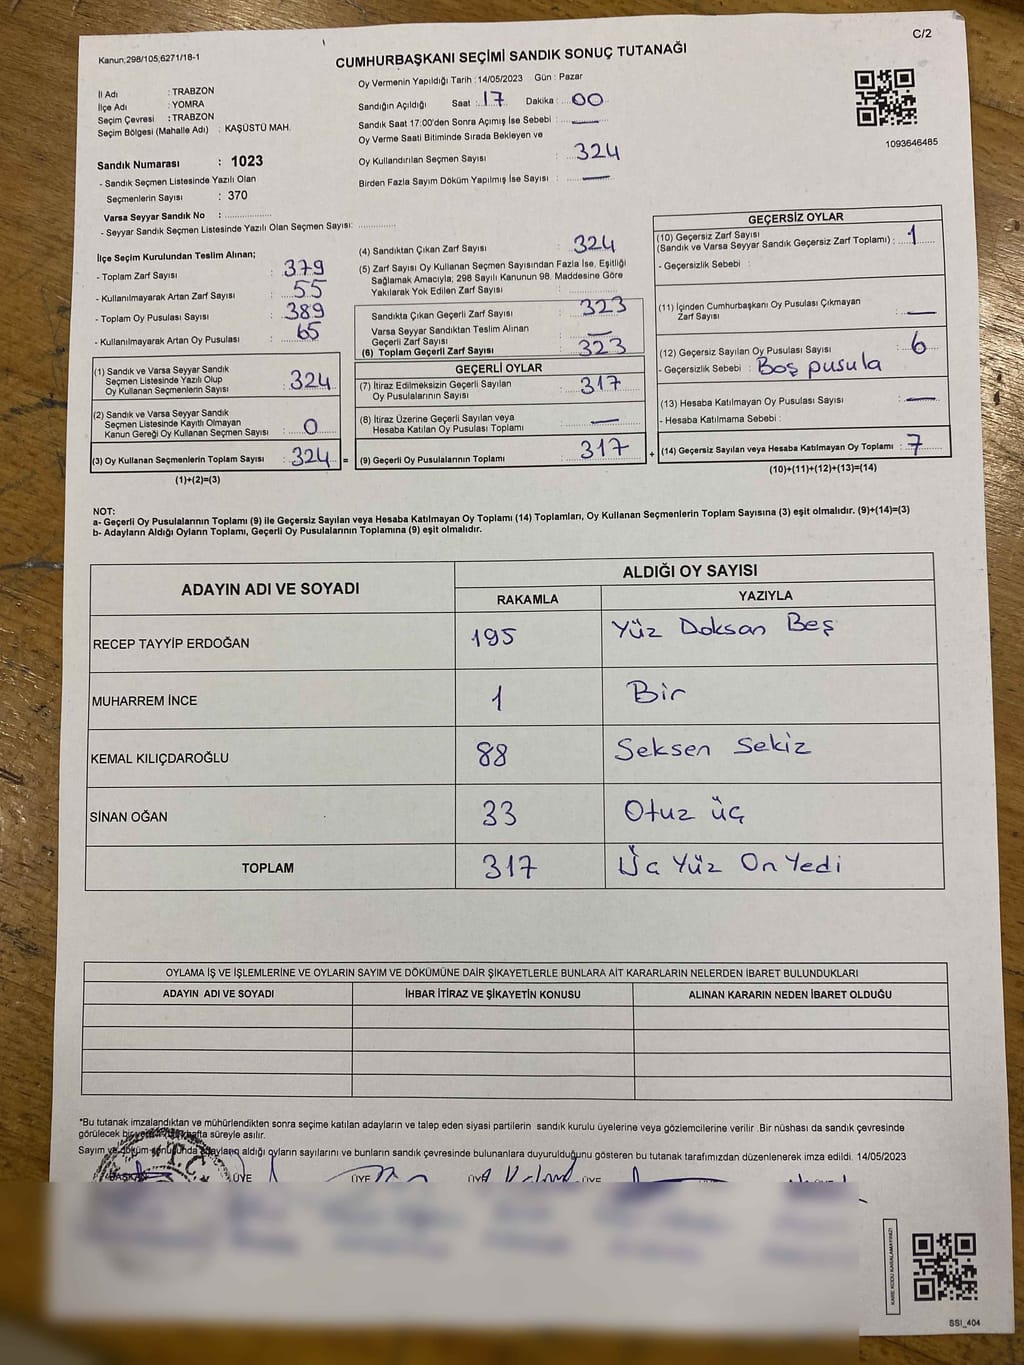 C/2
Kanun;298/105;6271/18-1
CUMHURBAŞKANI SEÇİMİ SANDIK SONUÇ TUTANAĞI
İl Adı : TRABZON
İlçe Adı : YOMRA
Seçim Çevresi : TRABZON
Seçim Bölgesi (Mahalle Adı) : KAŞÜSTÜ MAH.
Sandık Numarası : 1023
- Sandık Seçmen Listesinde Yazılı Olan
Seçmenlerin Sayısı : 370
Varsa Seyyar Sandık No :
- Seyyar Sandık Seçmen Listesinde Yazılı Olan Seçmen Sayısı:
Oy Vermenin Yapıldığı Tarih : 14/05/2023 Gün : Pazar
Sandığın Açıldığı Saat : 17 Dakika : 00
Sandık Saat 17:00'den Sonra Açımış İse Sebebi : —
Oy Verme Saati Bitiminde Sırada Bekleyen ve
Oy Kullandırılan Seçmen Sayısı : 324
Birden Fazla Sayım Döküm Yapılmış İse Sayısı : —
1093646485
İlçe Seçim Kurulundan Teslim Alınan;
- Toplam Zarf Sayısı : 379
- Kullanılmayarak Artan Zarf Sayısı : 55
- Toplam Oy Pusulası Sayısı : 389
- Kullanılmayarak Artan Oy Pusulası : 65
(1) Sandık ve Varsa Seyyar Sandık
Seçmen Listesinde Yazılı Olup
Oy Kullanan Seçmenlerin Sayısı : 324
(2) Sandık ve Varsa Seyyar Sandık
Seçmen Listesinde Kayıtlı Olmayan
Kanun Gereği Oy Kullanan Seçmen Sayısı : 0
(3) Oy Kullanan Seçmenlerin Toplam Sayısı : 324 =
(1)+(2)=(3)
(4) Sandıktan Çıkan Zarf Sayısı : 324
(5) Zarf Sayısı Oy Kullanan Seçmen Sayısından Fazla İse, Eşitliği
Sağlamak Amacıyla; 298 Sayılı Kanunun 98. Maddesine Göre
Yakılarak Yok Edilen Zarf Sayısı :
Sandıkta Çıkan Geçerli Zarf Sayısı : 323
Varsa Seyyar Sandıktan Teslim Alınan
Geçerli Zarf Sayısı : —
(6) Toplam Geçerli Zarf Sayısı : 323
GEÇERLİ OYLAR
(7) İtiraz Edilmeksizin Geçerli Sayılan
Oy Pusulalarının Sayısı : 317
(8) İtiraz Üzerine Geçerli Sayılan veya
Hesaba Katılan Oy Pusulası Toplamı : —
(9) Geçerli Oy Pusulalarının Toplamı : 317 +
GEÇERSİZ OYLAR
(10) Geçersiz Zarf Sayısı
(Sandık ve Varsa Seyyar Sandık Geçersiz Zarf Toplamı) : 1
- Geçersizlik Sebebi :
(11) İçinden Cumhurbaşkanı Oy Pusulası Çıkmayan
Zarf Sayısı : —
(12) Geçersiz Sayılan Oy Pusulası Sayısı : 6
- Geçersizlik Sebebi : Boş pusula
(13) Hesaba Katılmayan Oy Pusulası Sayısı : —
- Hesaba Katılmama Sebebi :
(14) Geçersiz Sayılan veya Hesaba Katılmayan Oy Toplamı : 7
(10)+(11)+(12)+(13)=(14)
NOT:
a- Geçerli Oy Pusulalarının Toplamı (9) ile Geçersiz Sayılan veya Hesaba Katılmayan Oy Toplamı (14) Toplamları, Oy Kullanan Seçmenlerin Toplam Sayısına (3) eşit olmalıdır. (9)+(14)=(3)
b- Adayların Aldığı Oyların Toplamı, Geçerli Oy Pusulalarının Toplamına (9) eşit olmalıdır.
ADAYIN ADI VE SOYADI ALDIĞI OY SAYISI
RAKAMLA YAZIYLA
RECEP TAYYİP ERDOĞAN 195 Yüz Doksan Beş
MUHARREM İNCE 1 Bir
KEMAL KILIÇDAROĞLU 88 Seksen Sekiz
SİNAN OĞAN 33 Otuz üç
TOPLAM 317 Üç Yüz On Yedi
OYLAMA İŞ VE İŞLEMLERİNE VE OYLARIN SAYIM VE DÖKÜMÜNE DAİR ŞİKAYETLERLE BUNLARA AİT KARARLARIN NELERDEN İBARET BULUNDUKLARI
ADAYIN ADI VE SOYADI İHBAR İTİRAZ VE ŞİKAYETİN KONUSU ALINAN KARARIN NEDEN İBARET OLDUĞU
*Bu tutanak imzalandıktan ve mühürlendikten sonra seçime katılan adayların ve talep eden siyasi partilerin sandık kurulu üyelerine veya gözlemcilerine verilir .Bir nüshası da sandık çevresinde
görülecek bir yere bir hafta süreyle asılır.
Sayım ve döküm sonucunda adayların aldığı oyların sayılarını ve bunların sandık çevresinde bulunanlara duyurulduğunu gösteren bu tutanak tarafımızdan düzenlenerek imza edildi. 14/05/2023
T.C.
BAŞKAN ÜYE ÜYE ÜYE ÜYE
KARE KODU KARALAMAYINIZ!
SSI_404